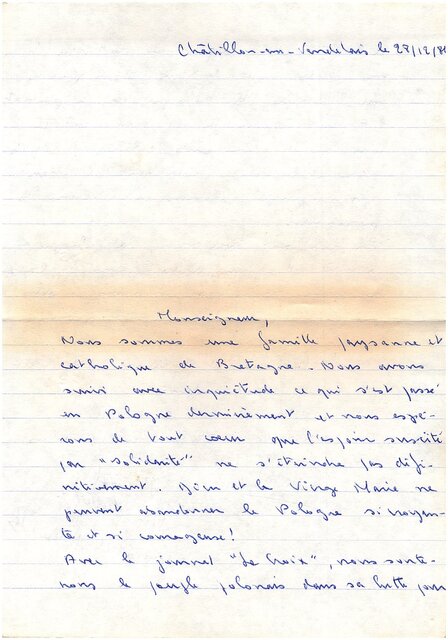 Châtillon-en-Vendelais le 28/12/81
Monseigneur,
Nous sommes une famille paysanne et
catholique de Bretagne. Nous avons
suivi avec inquiétude ce qui s'est passé
en Pologne dernièrement et nous espé-
rons de tout coeur que l'espoir suscité
par "Solidarité" ne s'éteindra pas défi-
nitivement. Dieu et la Vierge Marie ne
peuvent abandonner la Pologne si croyan-
te et si courageuse!
Avec le journal "La Croix", nous soute-
nons le peuple polonais dans sa lutte pour